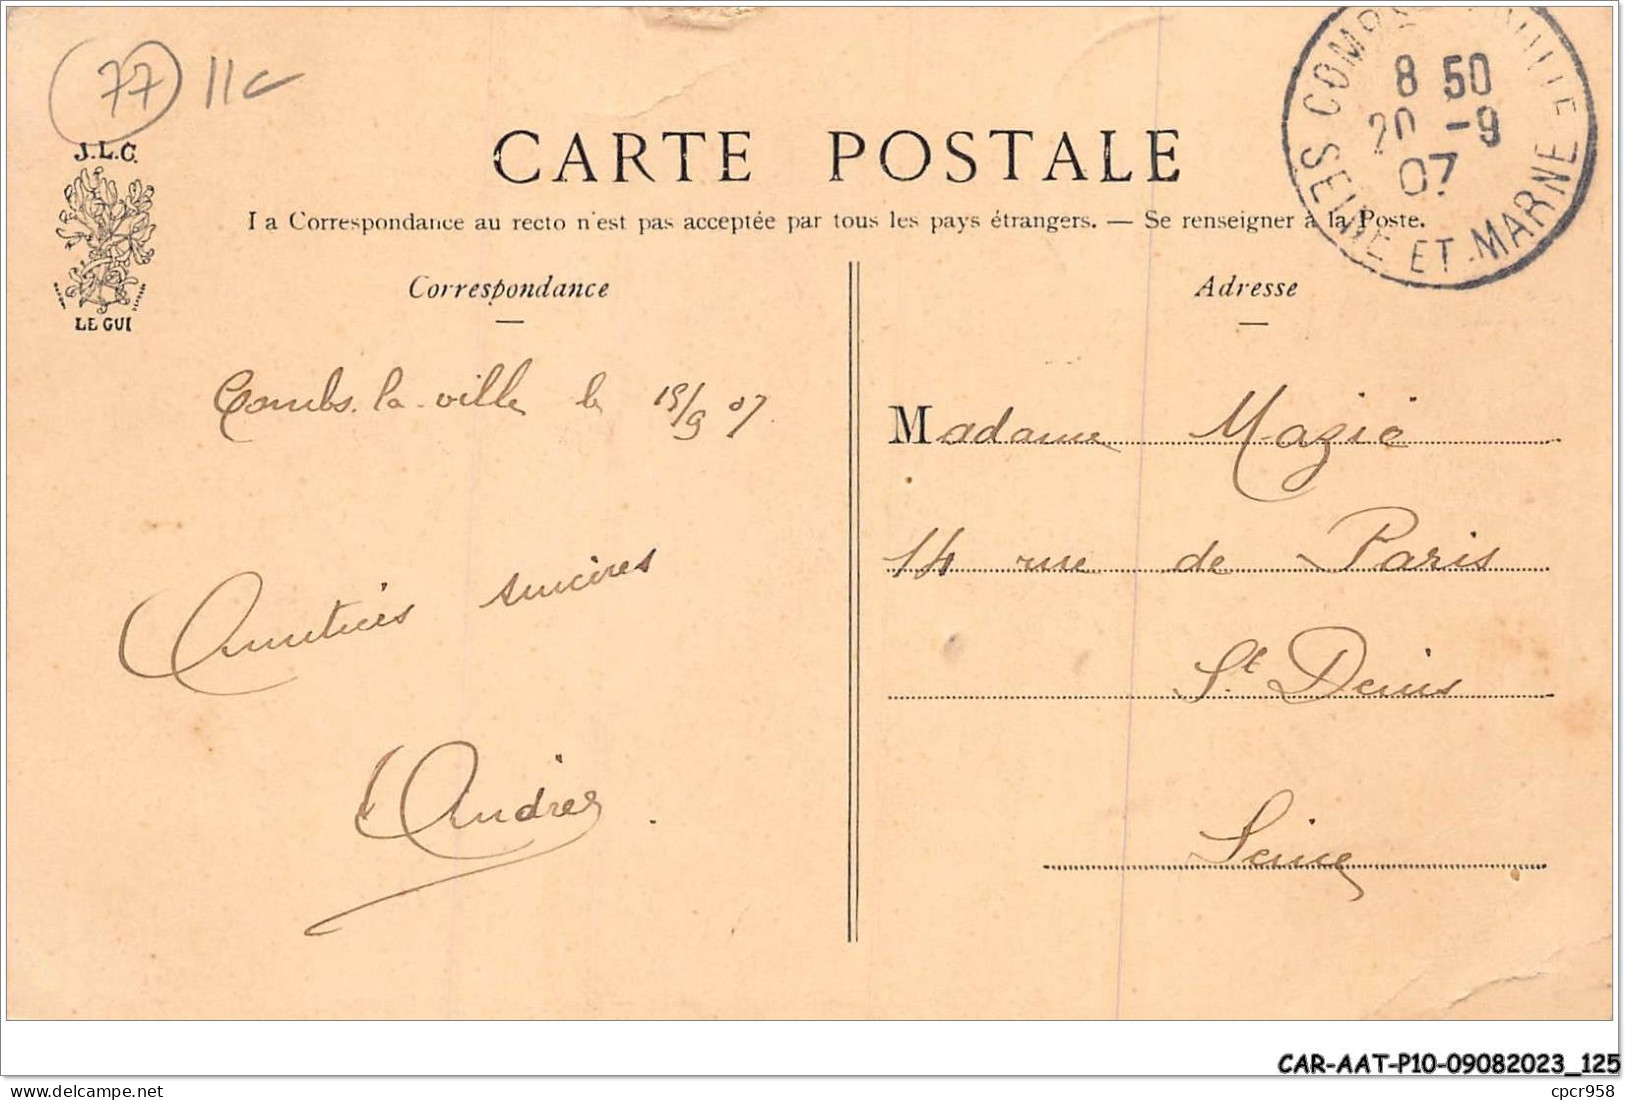 77 11c
J.L.C.
LE GUI
CARTE POSTALE
La Correspondance au recto n'est pas acceptée par tous les pays étrangers. — Se renseigner à la Poste.
COMBS VILLE
8 50
20 -9
07
SEINE ET MARNE
Correspondance
Combs-la-ville le 19/9 07.
Amitiés sincères
Andrée
Adresse
Madame Mazié
14 rue de Paris
St Denis
Seine
CAR-AAT-P10-09082023_125
www.delcampe.net
cpcr958